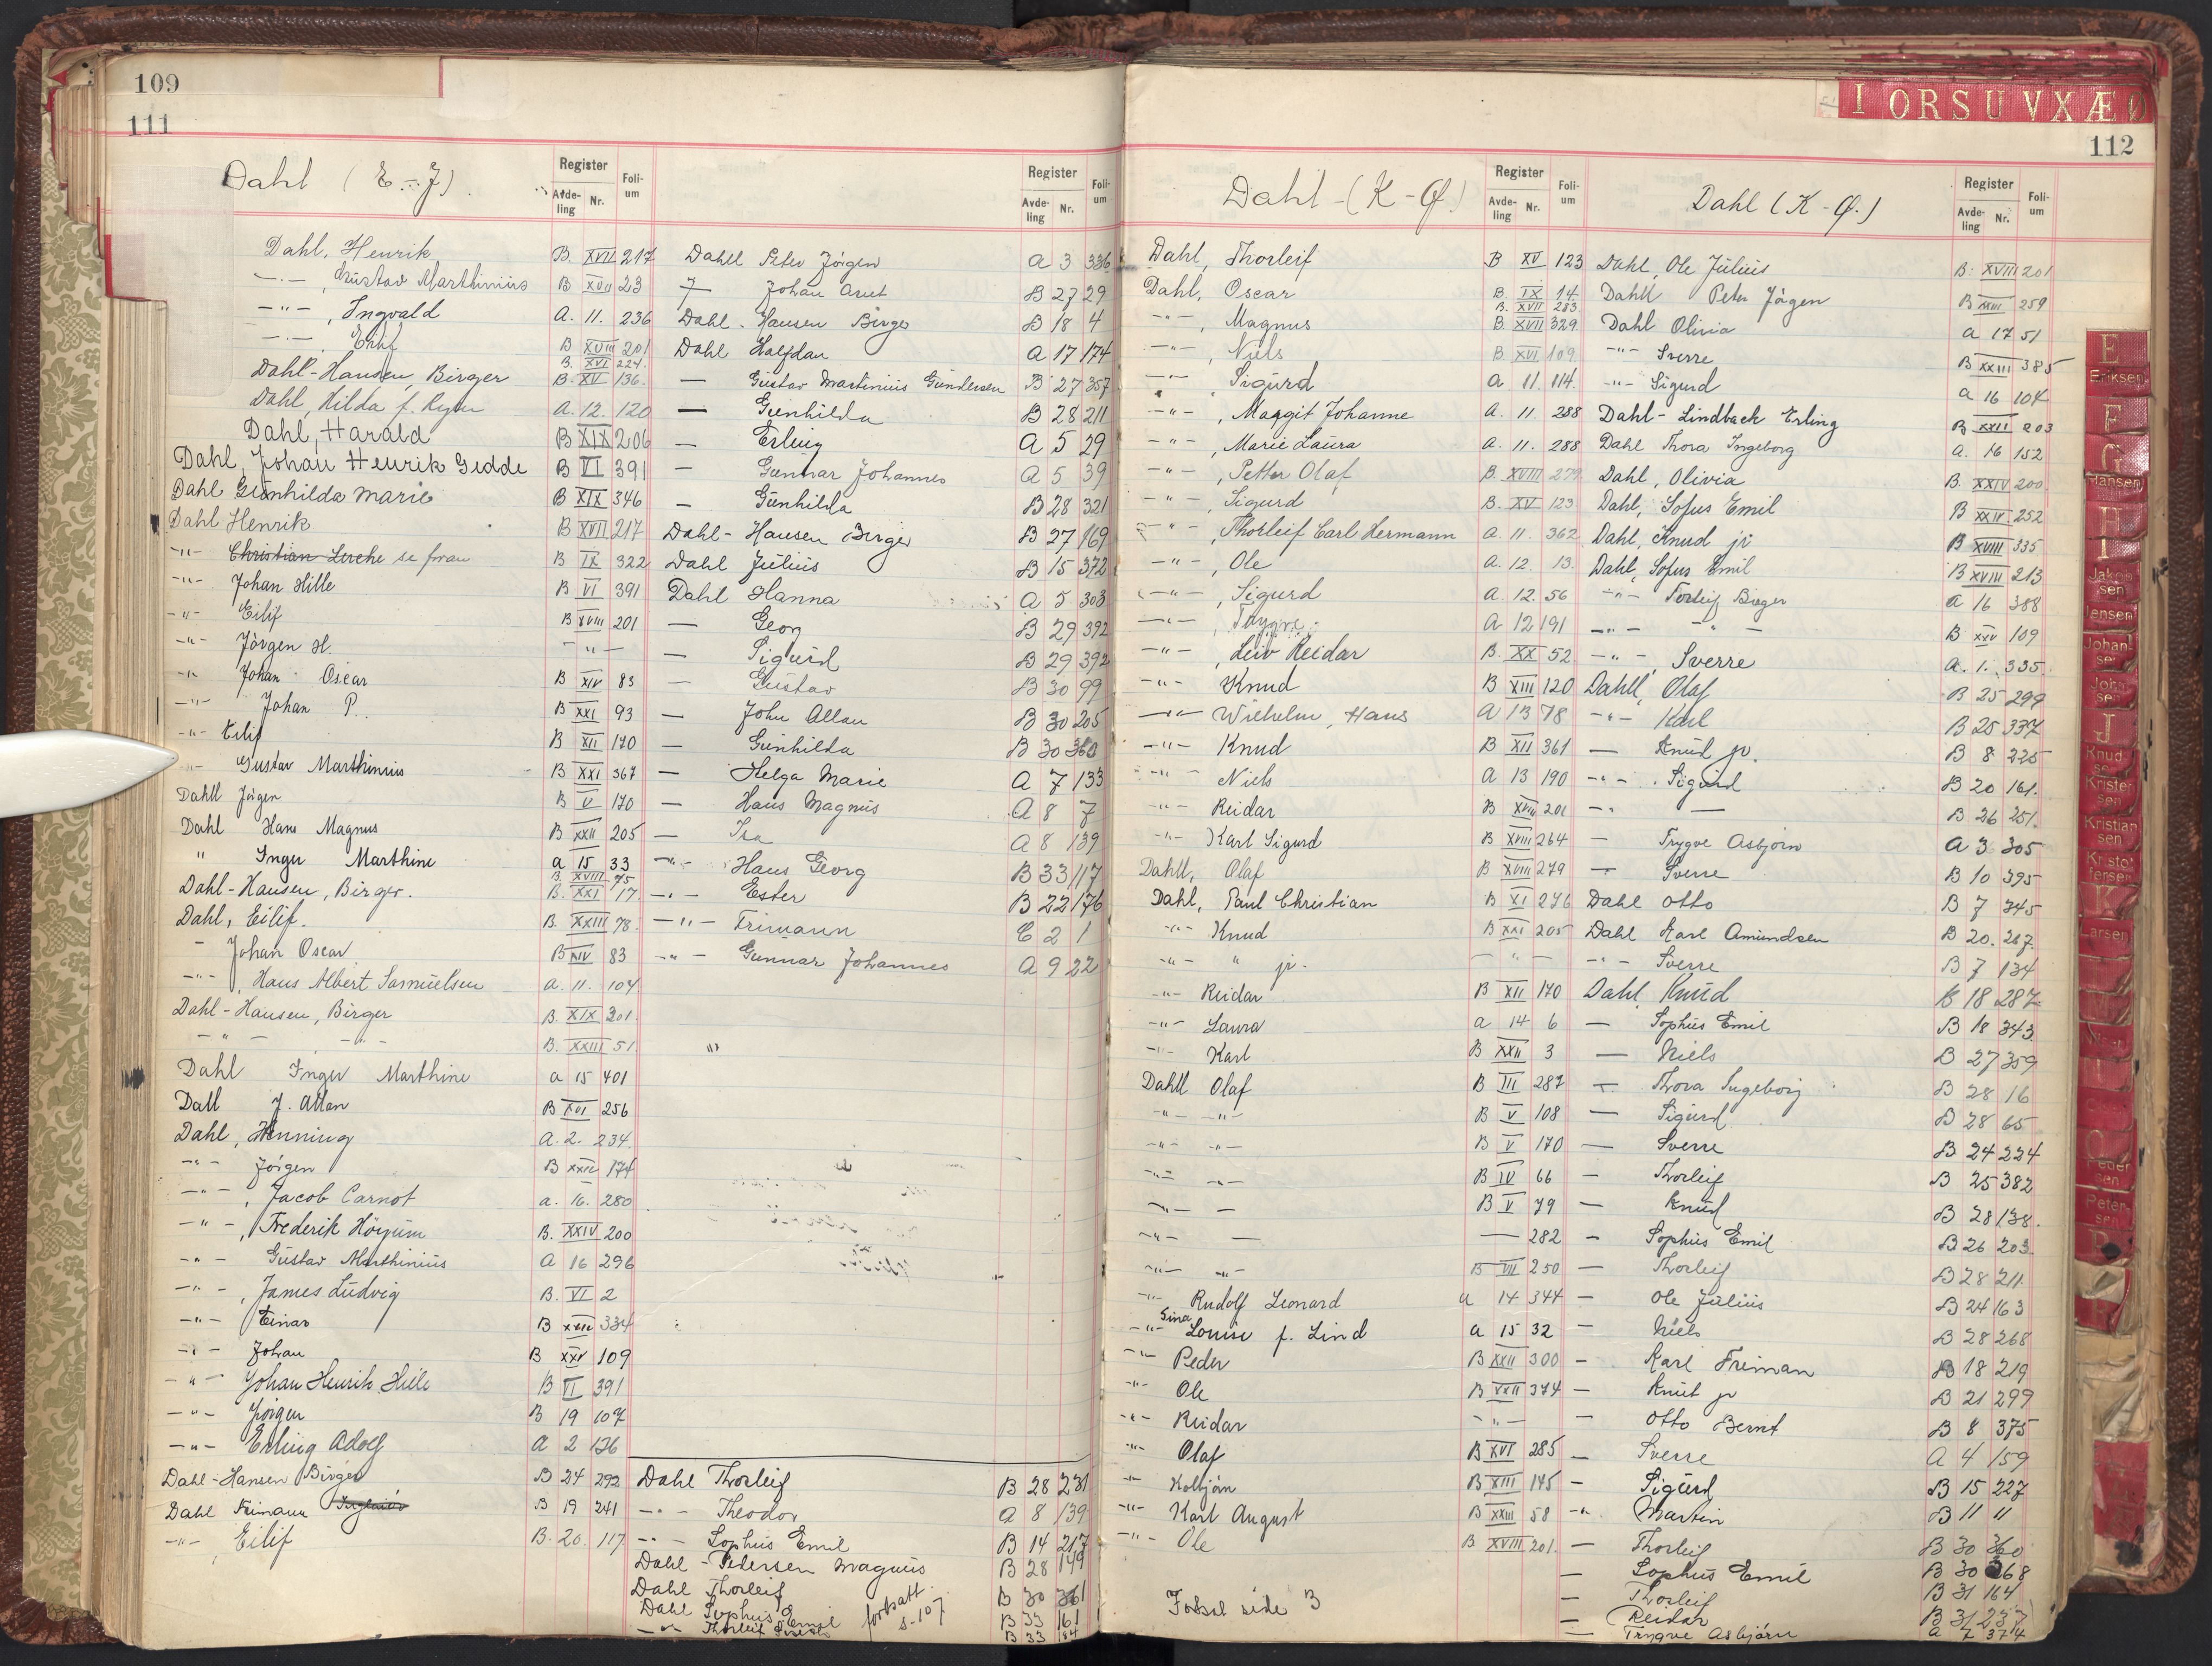 109
111
Dahl (E-J).
Register
Avde-ling Nr. Foli-um
Dahl, Henrik B. XVII 217
-"- , Gustav Marthinius B XVII 23
-"- , Ingvald A. 11. 236
B XVIII 201
B. XVI 224.
Dahl-Hansen, Birger B. XV 136.
Dahl, Hilda f. A. 12. 120
Dahl, Harald B XIX 206
Dahl, Johan Henrik Gedde B VI 391
Dahl Gunhilda Marie B XIX 346
Dahl Henrik B XVII 217
-"- Christian Lerche se frau B IX 322
-"- Johan Hille B VI 391
-"- Eilif B XVIII 201
-"- Jörgen H. - " -
-"- Johan Oscar B XIV 83
-"- Johan P. B XXI 93
-"- Eilif B XII 170
-"- Gustav Marthinius B XXI 367
Dahll Jörgen B V 170
Dahl Hans Magnus B XXII 205
" Inger Marthine a 15 33
B. XVIII 75
Dahl-Hansen, Birger. B. XXI 17
Dahl, Eilif. B. XXIII 78
- Johan Oscar B XIV 83
-"- , Hans Albert Samuelsen A. 11. 104
Dahl-Hansen, Birger B. XIX 301
- " - -"- B. XXIII 51.
Dahl Inger Marthine a 15 401
Dall J. Allan B XVI 256
Dahl, Henning A. 2. 234.
-"- Jörgen B XXIV 174
-"- , Jacob Carnot a. 16. 280
-"- , Frederik Höyum B. XXIV 200
-"- Gustav Marthinius A 16 296
-"- , James Ludvig B. VI 2
-"- Einar B XXIV 334
-"- Johan B XXV 109
-"- Johan Henrik Hille B VI 391
-"- Jörgen B 19 107
-"- Erling Adolf A 2 126
Dahl-Hansen Birger B 24 292
Dahl Frimann B 19 241
-"- , Eilif B. 20. 117
Register
Avde-ling Nr. Foli-um
Dahll Peter Jörgen a 3 336
Johan Arnt B 27 29
Dahl-Hansen Birger B 18 4
Dahl Halfdan A 17 174
— Gustav Martinius Gundersen B 27 357
— Gunhilda B 28 211
— Erling A 5 29
— Gunnar Johannes A 5 39
— Gunhilda B 28 321
Dahl-Hansen Birger B 27 169
Dahl Julius B 15 372
Dahl Hanna A 5 303
— Georg B 29 392
— Sigurd B 29 392
— Gustav B 30 99
— John Allan B 30 205
— Gunhilda B 30 360
— Helga Marie A 7 133
— Hans Magnus A 8 7
— A 8 139
-"- Hans Georg B 33 117
-"- Ester B 22 176
-"- Frimann C 2 1
-"- Gunnar Johannes A 9 22
Dahl Thorleif B 28 231
-"- Theodor A 8 139
-"- Sophus Emil B 14 217
Dahl-Pedersen Magnus B 28 149
Dahl Thorleif B 30 361
Dahl Sophus Emil B 33 161
-"- Thorleif B 33 184
fortsatt s-107
I O R S U V X Æ Ø
112
Dahl-(K-Ø)
Register
Avde-ling Nr. Foli-um
Dahl, Thorleif B XV 123
Dahl, Oscar B. IX 14.
B. XVII 283
-"- , Magnus B. XVII 329
-"- , Niels B. XVI 109
-"- Sigurd a 11. 114.
-"- , Margit Johanne A. 11. 288
-"- , Marie Laura a. 11. 288
-"- , Petter Olaf B. XVIII 279
-"- , Sigurd B. XV 123
-"- , Thorleif Carl Hermann A. 11. 362
-"- , Ole A. 12. 13.
-"- , Sigurd A. 12. 56
-"- , Trygve A 12 191
-"- , Leiv Reidar B. XX 52
-"- Knud B XIII 120
-"- Wilhelm, Hans A 13 78
-"- Knud B XII 361
-"- Niels A 13 190
-"- Reidar B XVIII 201
-"- Karl Sigurd B XVIII 264
Dahll, Olaf B XVIII 279
Dahl, Paul Christian B XI 276
-"- Knud B XXI 205
-"- " jr. - " -
-"- Reidar B XII 170
-"- Laura a 14 6
-"- Karl B XXII 3
Dahll Olaf B III 287
-"- -"- B V 108
-"- -"- B V 170
-"- -"- B IV 66
-"- — B V 79
-"- — — 282
-"- -"- B VII 250
-"- Rudolf Leonard a 14 344
-"- Sina Louise f. Lind a 15 32
-"- Peder B XXII 300
-"- Ole B XXII 374
-"- Reidar -"-
-"- Olaf B XVI 285
-"- Kolbjörn B XIII 145
-"- Karl August B XXIII 58
-"- Ole B XVIII 201.
Forts side 3
Dahl (K-Ø.)
Register
Avde-ling Nr. Foli-um
Dahl, Ole Julius B. XVIII 201
Dahll Peter Jörgen B XXIII 259
Dahl Olivia a 17 51
-"- Sverre B XXIII 385
-"- Sigurd a 16 104
Dahl-Lindback Erling B XXII 203
Dahl Thora Ingeborg a. 16 152
Dahl, Olivia B. XXIV 200
Dahl, Sofus Emil B XXIV 252
Dahl, Knud jr B XVIII 335
Dahl, Sofus Emil B XVIII 213
-"- Torleif Birger a 16 388
-"- -"- B XXV 109
-"- , Sverre a. 1. 335.
Dahll, Olaf B 25 299
-"- Karl B 25 337
— Knud jr. B 8 225
-"- Sigurd B 20 161.
-"- — B 26 251.
— Trygve Asbjörn A 3 305
— Sverre B 10 395
Dahl Otto B 7 345
Dahl Karl Amundsen B 20. 267.
-"- Sverre B 7 134
Dahl Knud B 18 287
— Sophus Emil B 18 343
— Niels B 27 359
— Thora Ingeborg B 28 16
— Sigurd B 28 65
— Sverre B 24 224
— Thorleif B 25 382
— Knud B 28 138.
— Sophus Emil B 26 203
— Thorleif B 28 211
— Ole Julius B 24 163
— Niels B 28 268
— Karl Friman B 18 219
— Knut jr B 21 299
— Otto Bernt B 8 375
— Sverre A 4 159
— Sigurd B 15 227
-"- Martin B 11 11
— Thorleif B 30 360
— Sophus Emil B 30 268
— Thorleif B 31 164
— Reidar B 31 237
— Trygve Asbjörn a 7 374
E
Eriksen
F
G
Hansen
H
I
Jakobsen
Jensen
Johansen
Johnsen
J
Knudsen
Kristensen
Kristiansen
Kristoffersen
K
Larsen
L
Pedersen
Petersen
P